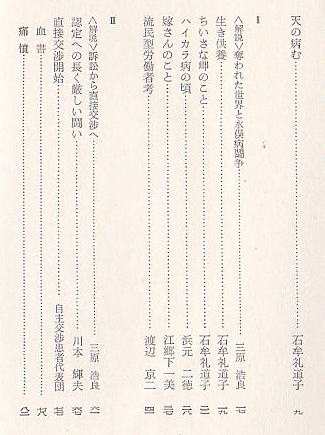 天の病む……石牟礼道子 九
Ⅰ
〈解説〉奪われた世界と水俣病闘争……三原 浩良
生き供養……石牟礼道子
ちいさな岬のこと……石牟礼道子
ハイカラ病の頃……浜元 二徳
嫁さんのこと……江郷下一美
流民型労働者考……渡辺 京二
Ⅱ
〈解説〉訴訟から直接交渉へ……三原 浩良
認定への長く厳しい闘い……川本 輝夫
直接交渉開始……自主交渉患者代表団
血書……
痛憤……